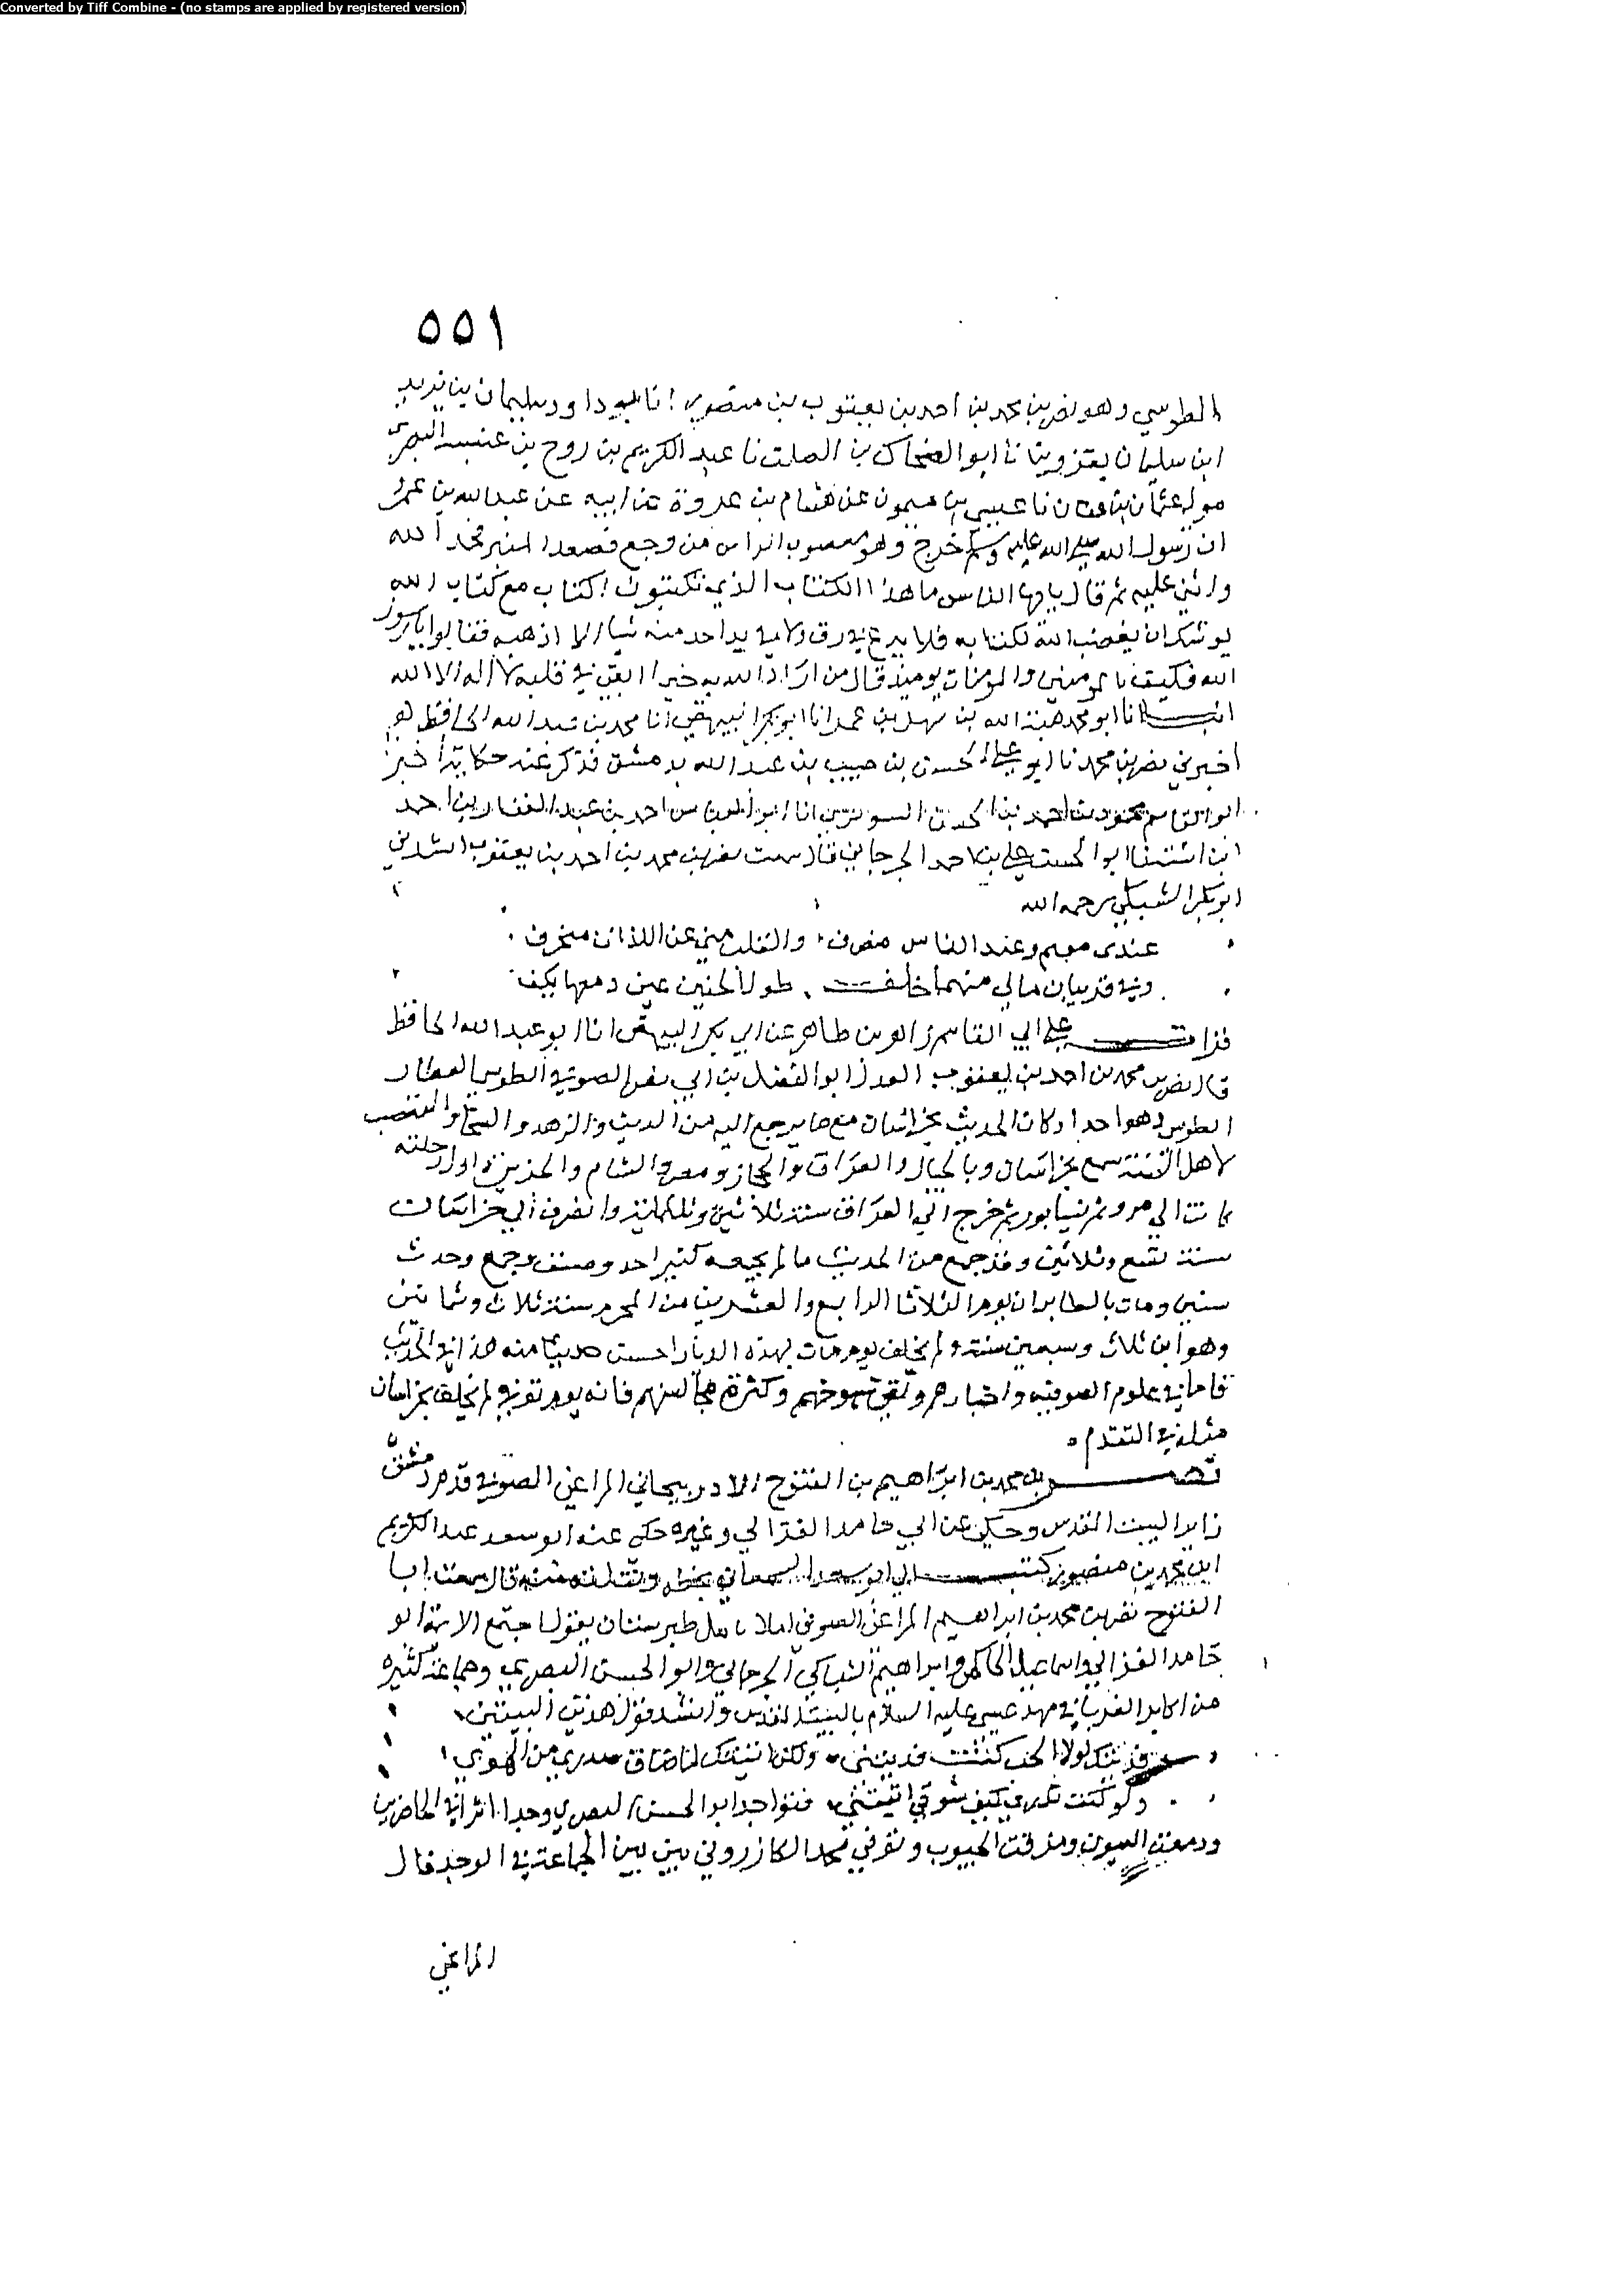 Converted by Tiff Combine - (no stamps are applied by registered version)
٥٥١
الطوسي وهو نصر بن محمد بن احمد بن يعقوب بن منصور انا داود سليمان بن يزيد
ابن سليمان بقزوين نا ابو الضحاك بن الصلت نا عبد الكريم بن روح بن عنبسة البصري
مولى عثمان بن عفان نا عيسى بن ميمون عن هشام بن عروة عن ابيه عن عبد الله بن عمرو
ان رسول الله صلى الله عليه وسلم خرج وهو معصوب الراس من وجع فصعد المنبر فحمد الله
واثنى عليه ثم قال يا يها الناس ما هذا الكتاب الذي تكتبون اكتاب مع كتاب الله
يوشك ان يغضب الله لكتابه فلا يدع في رق ولا في يد احد منه شيا الا اذهبه فقالوا يا رسول
الله فكيف بالمومنين والمومنات يوميذ قال من اراد الله به خيرا ابقى في قلبه لا اله الا الله
انبانا ابو محمد هبة الله بن سهل بن عمر انا ابو بكر البيهقي انا محمد بن عبد الله الحافظ
اخبرني نصر بن محمد نا ابو علي الحسن بن حبيب بن عبد الله بدمشق فذكر عنه حكاية اخبرنا
ابو القاسم محمود بن احمد بن الحسن انا ابو احمد بن عبد الغفار بن احمد
ابن اشتة نا ابو الحسن علي بن احمد الجرجاني قال سمعت نصر بن محمد بن احمد بن يعقوب انشدني
ابو بكر الشبلي رحمه الله
عندى وعند الناس منصرف والقلب مني عن اللذات منحرف
وفي مالي منهما خلف طول الحنين عين دمعها يكف
قرات على ابي القاسم زاهر بن طاهر عن ابي بكر البيهقي انا ابو عبد الله الحافظ
قال نصر بن محمد بن احمد بن يعقوب العدل ابو الفضل بن ابي نصر الصوفي الطوسي العطار
الطوسي وهو احد اركان الحديث بخراسان مع ما يرجع اليه من الدين والزهد والسخا والتعصب
لاهل السنة سمع بخراسان وبالجبال والعراق والحجاز ومصر والشام والجزيرة اول رحلته
كانت الى مرو ثم نيسابور ثم خرج الى العراق سنة ثلاثين وثلثماية وانصرف الى خراسان
سنة تسع وثلاثين وقد جمع من الحديث ما لم يجمعه كثير احد وصنف وجمع وحدث
سنين ومات بالطابران يوم الثلاثا الرابع والعشرين من المحرم سنة ثلاث وثمانين
وهو ابن ثلاث وسبعين سنة ولم يخلف يوم مات بهذه الديار احسن حديثا منه هذا في الحديث
فاما في علوم الصوفيه واخبارهم ولقي شيوخهم وكثرة مجالستهم فانه يوم توفي لم يخلف بخراسان
مثله في التقدم
نصر بن محمد بن ابراهيم بن الفتوح الادربيجاني المراغي الصوفي قدم دمشق
زايرا لبيت المقدس وحكى عن ابي حامد الغزالي وغيره حكى عنه ابو سعد عبد الكريم
ابن محمد بن منصور كتب الي ابو سعد السمعاني بخطه ونقلته منه قال سمعت ابا
الفتوح نصر بن محمد بن ابراهيم المراغي الصوفي املا بامل طبرستان يقول اجتمع الايمة ابو
حامد الغزالي واسماعيل الحاكمي وابراهيم الشباكي الجرجاني وابو الحسن البصري وجماعة كثيره
من اكابر الغربا في مهد عيسى عليه السلام بالبيت المقدس وانشد قوال هذين البيتين
فديتك لولا الحب كنت فديتني ولكن لما ضاق صدري من الهوى
ولو كنت تدري كيف شوقي اتيتني فتواجد ابو الحسن البصري وجدا اثر في الحاضرين
ودمعت العيون ومزقت الجيوب وتوفي محمد الكازروني من بين الجماعة في الوجد قال
المراغي